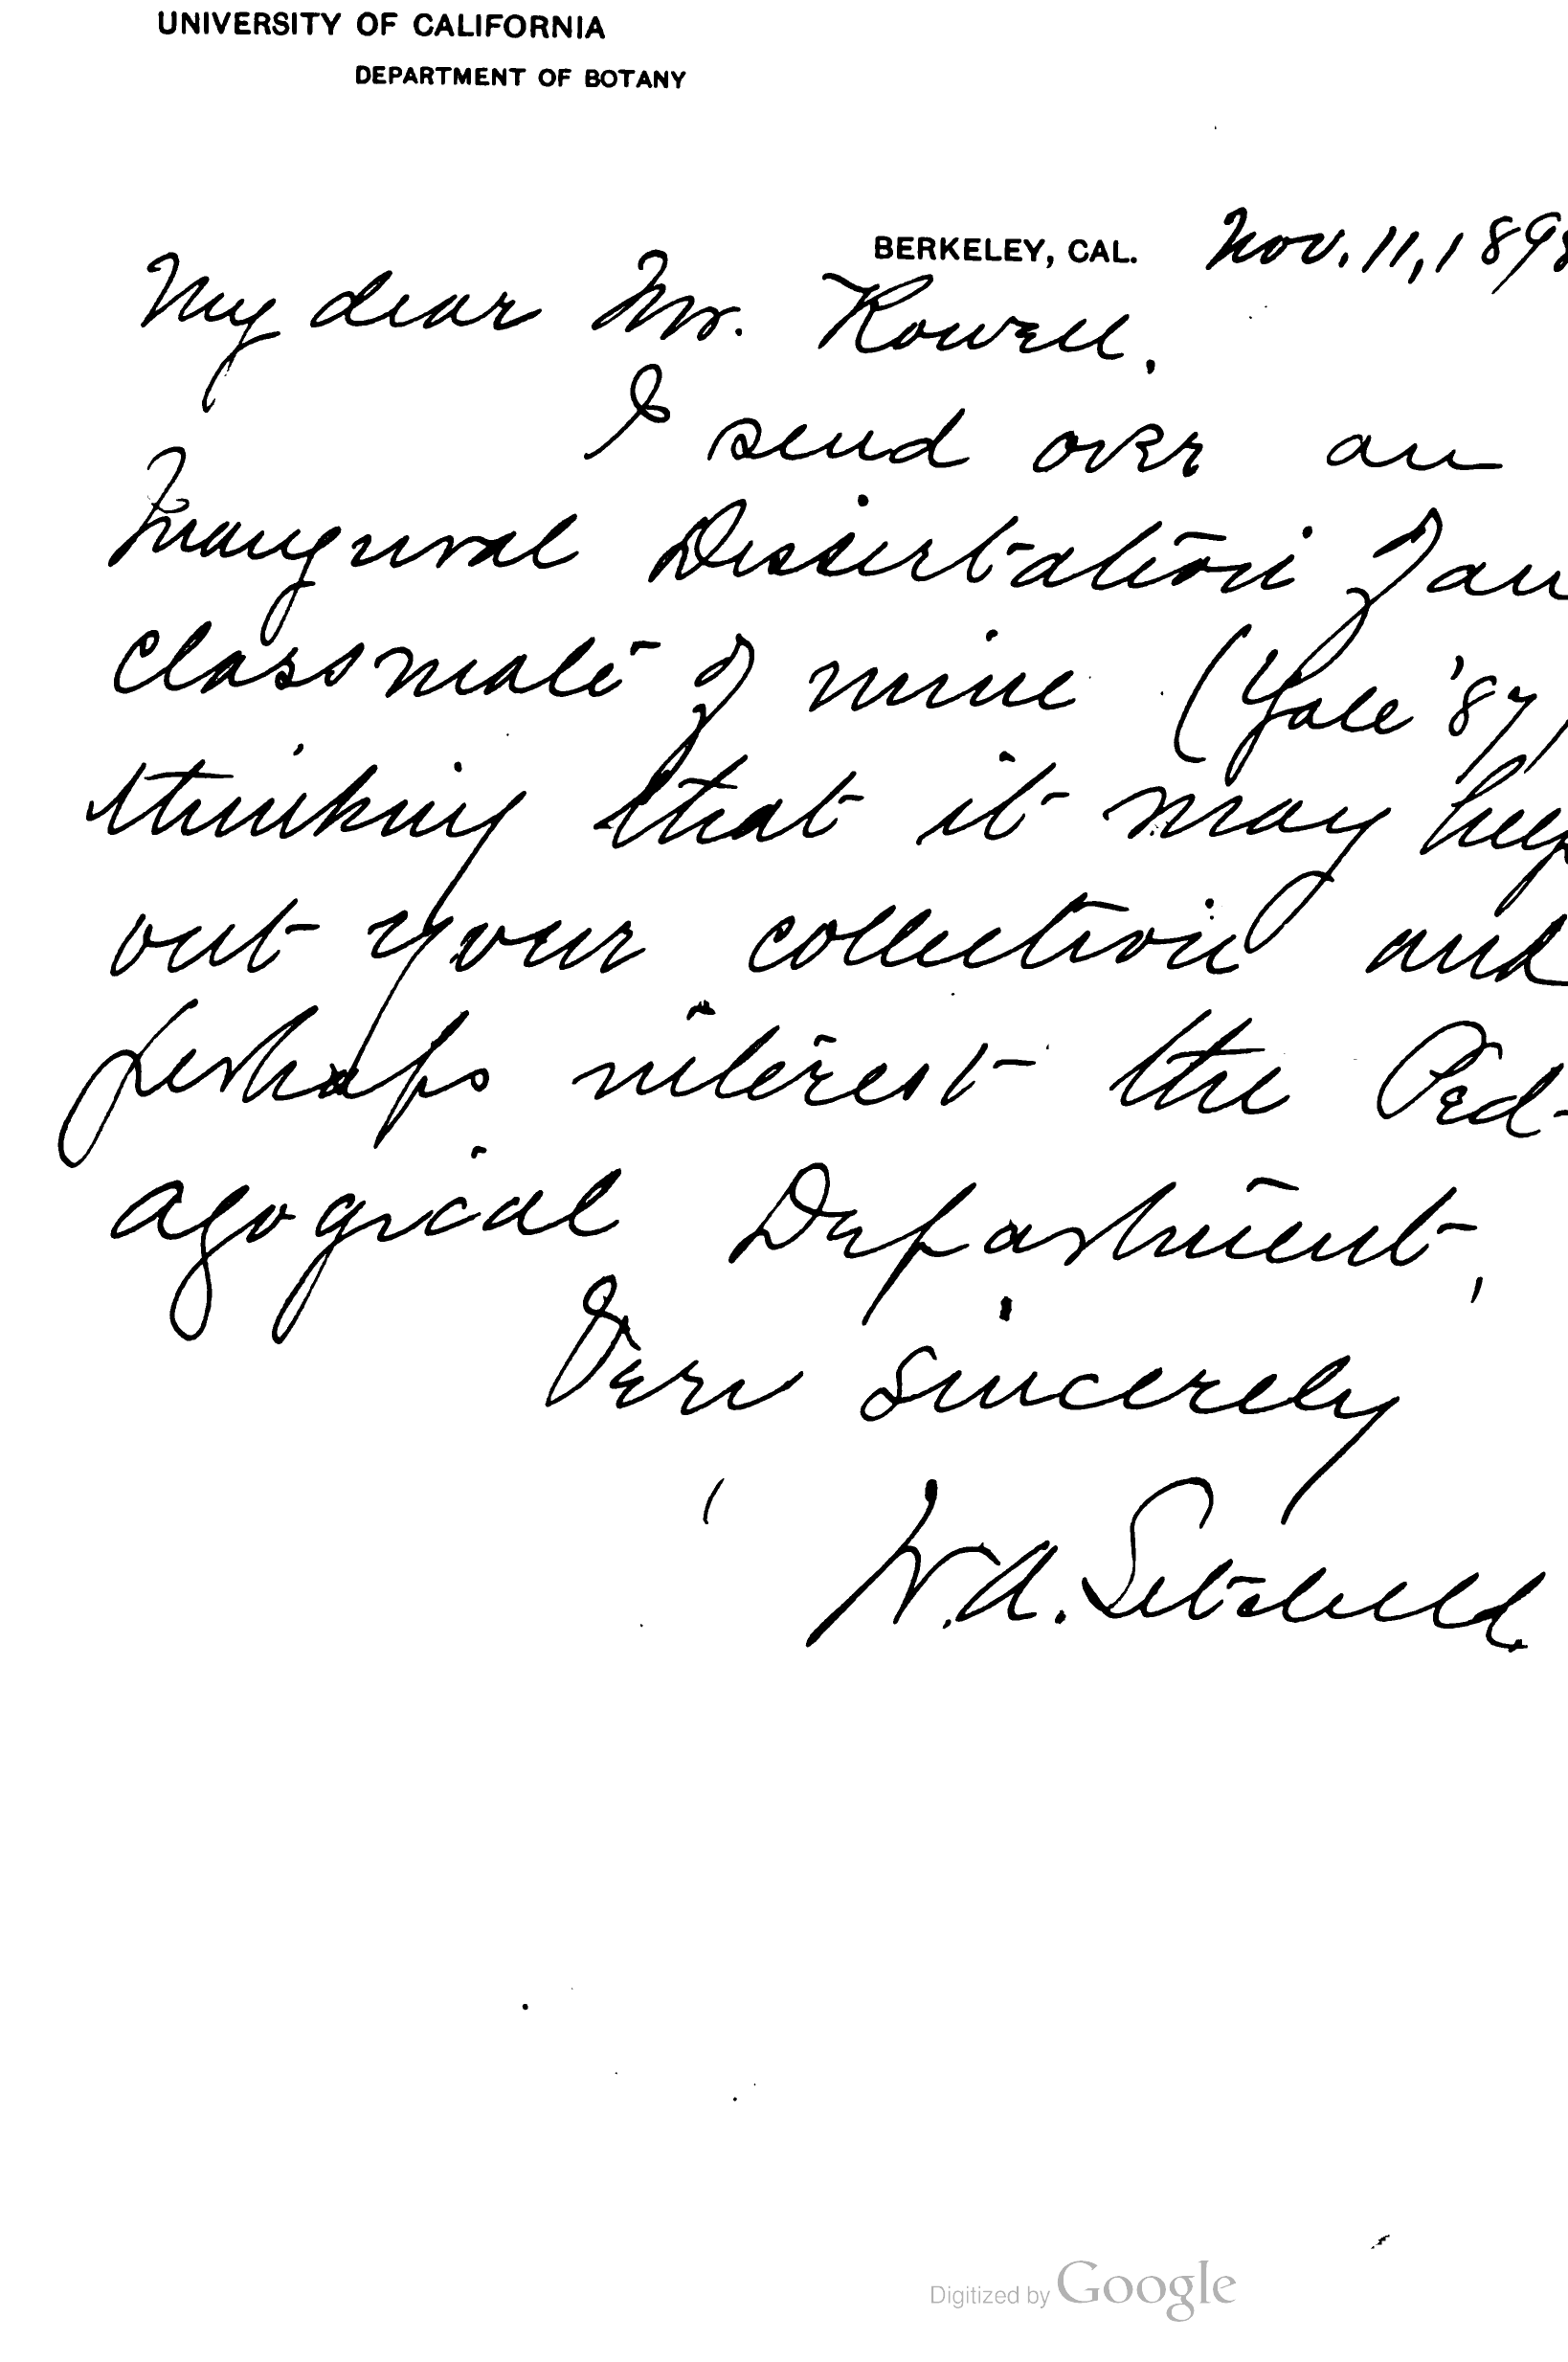 UNIVERSITY OF CALIFORNIA
DEPARTMENT OF BOTANY
BERKELEY, CAL. Nov. 11, 1898
My dear Mr. Rowell,
I send over an
Inaugural Dissertation of an
classmate of mine (Yale '87)
thinking that it may help
out your collection and
perhaps interest the Ped-
agogical Department,
Very sincerely
W. A. Setchell
Digitized by Google